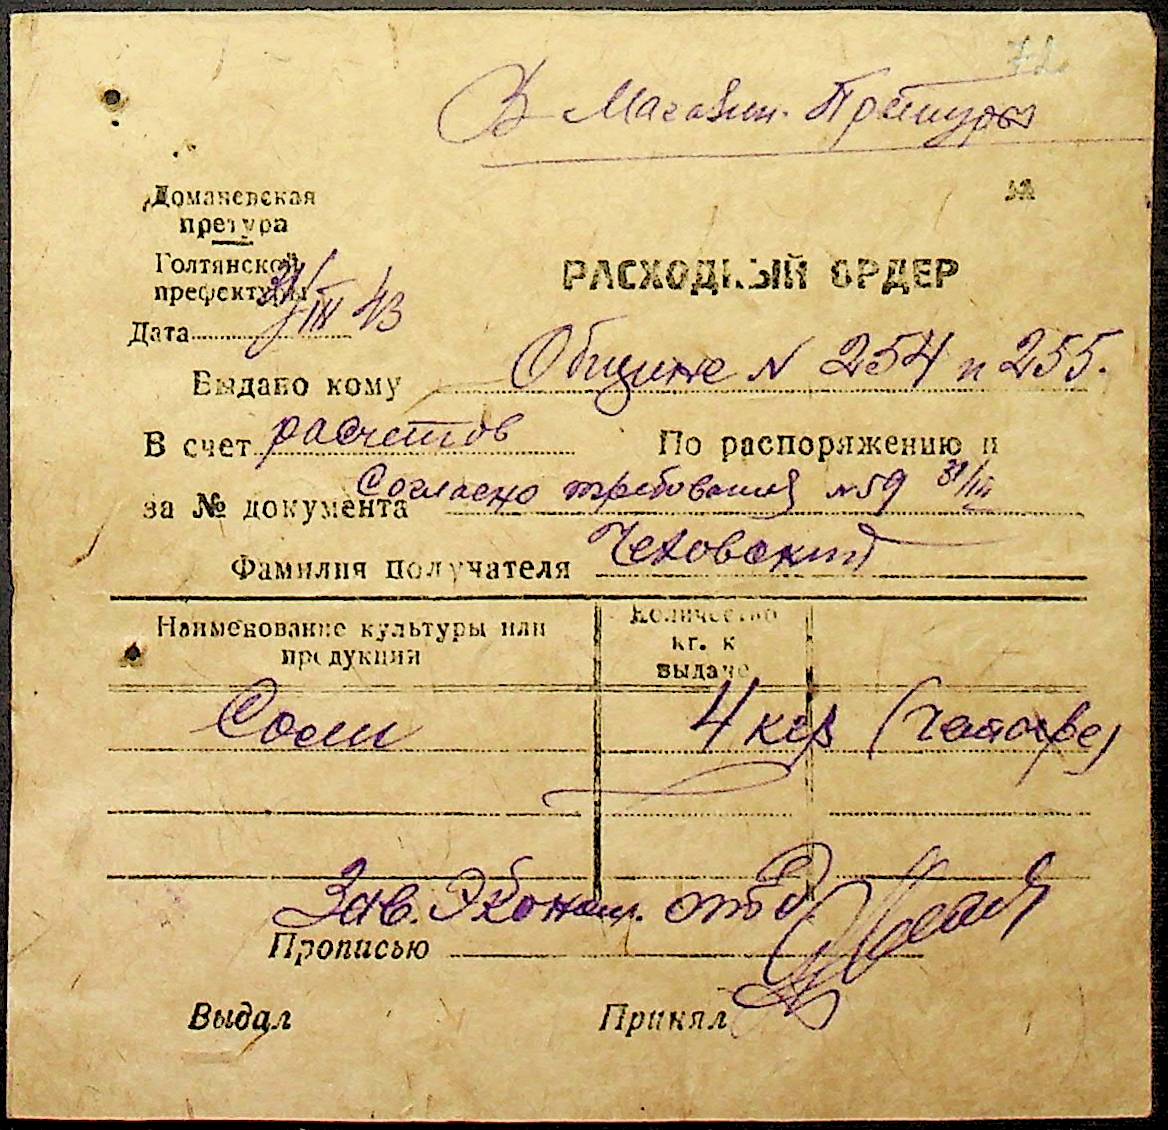 72
В Магазин. Претуры
Доманевская
претура
Голтянской
префектуры
№
РАСХОДНЫЙ ОРДЕР
Дата 31/III 43
Выдано кому Общине № 254 и 255.
В счет расчетов По распоряжению и
за № документа Согласно требования №59 31/III
Фамилия получателя Чеховский
Наименование культуры или
продукции
Количество
кг. к
выдаче
Соли 4 кгр (четыре)
Зав. Эконом. отд
Прописью
Выдал Принял